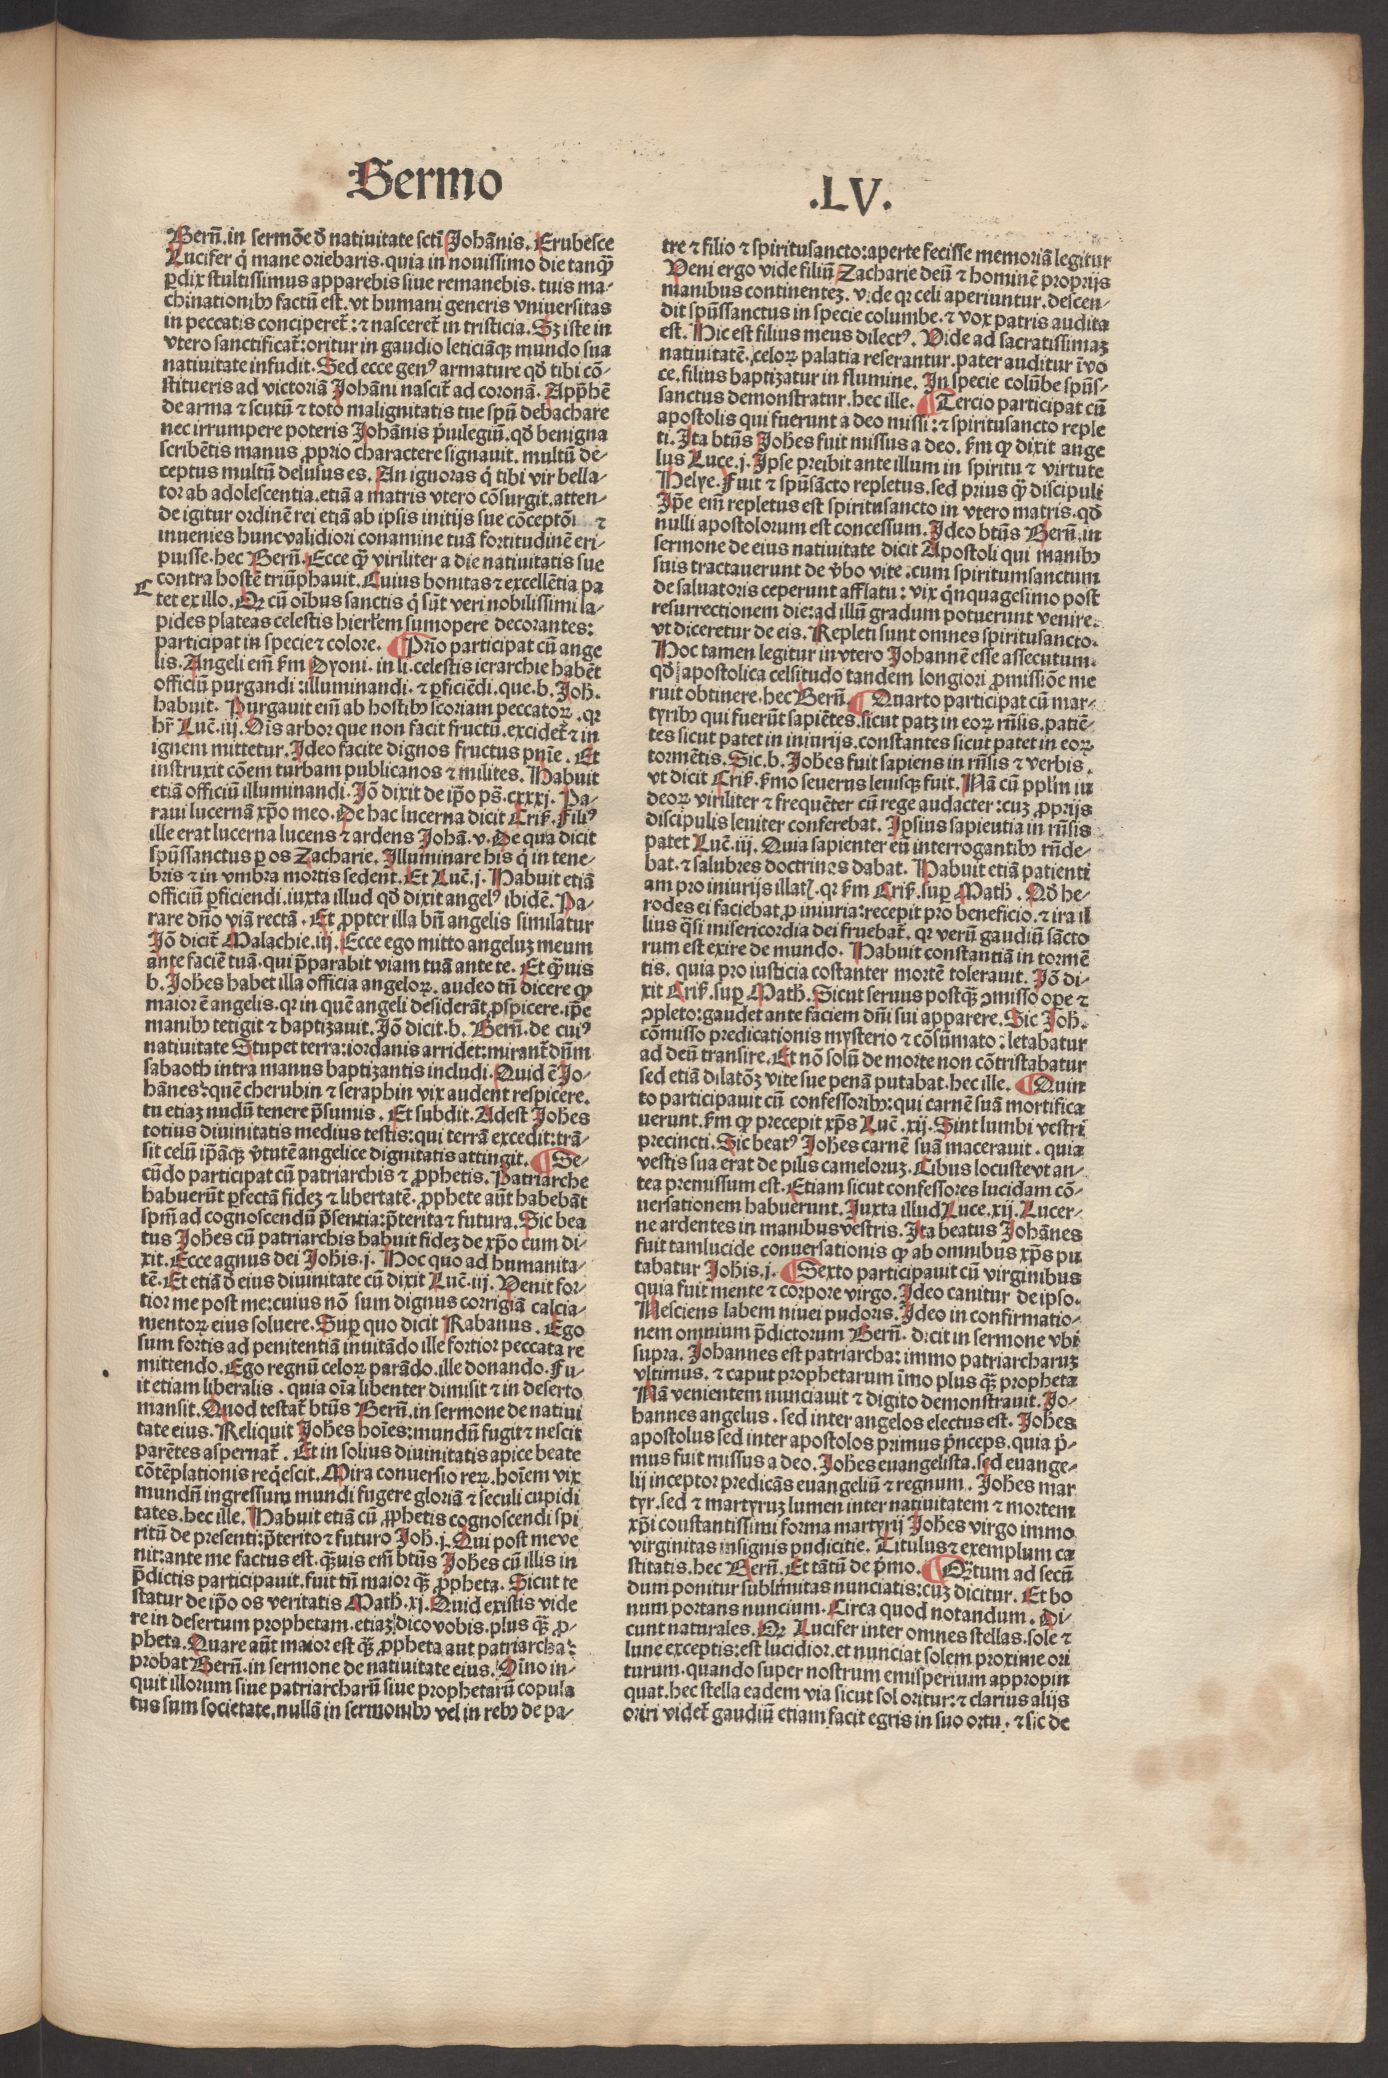 Sermo
.LV.
Berñ.in sermõe đ natiuitate scti Johãnis. Erubesce
Lucifer q̇ mane oriebaris.quia in nouissimo die tanq̃
ꝑdix stultissimus apparebis siue remanebis. tuis ma-
chinationibꝫ factũ est. vt humani generis vniuersitas
in peccatis conciperet᷑:⁊ nasceret᷑ in tristicia. Sꝫ iste in
vtero sanctificat᷑:oritur in gaudio leticiãqꝫ mundo sua
natiuitate infudit. Sed ecce genꝰ armature qđ tibi cõ-
stitueris ad victoriã Johãni nascit᷑ ad coronã. Appħẽ
de arma ⁊ scutũ ⁊ toto malignitatis tue spũ debachare
nec irrumpere poteris Johãnis p̃uilegiũ.qđ benigna
scribẽtis manus ꝓprio charactere signauit. multũ de-
ceptus multũ delusus es. An ignoras q̇ tibi vir bella-
tor ab adolescentia.etiã a matris vtero cõsurgit.atten-
de igitur ordinẽ rei etiã ab ipsis initijs sue cõceptõi ⁊
inuenies huncvalidiori conamine tuã fortitudinẽ eri-
puisse.hec Berñ. Ecce q̃ viriliter a die natiuitatis sue
contra hostẽ triũphauit. Cuius bonitas ⁊ excellẽtia pa
tet ex illo. Qꝛ cũ oĩbus sanctis q̇ sũt veri nobilissimi la-
pides plateas celestis hierłem sumopere decorantes:
participat in specie ⁊ colore. ¶ Prio participat cũ ange
lis. Angeli eĩm ẜm Dyoni. in li.celestis ierarchie habẽt
officiũ purgandi:illuminandi. ⁊ ꝑficiẽdi.que.b. Joh̄.
habuit. Purgauit eĩm ab hostibꝫ scoriam peccatoꝝ.qꝛ
hr̃ Luc̃.iij. Ois arbor que non facit fructũ.excidet᷑ ⁊ in
ignem mittetur. Ideo facite dignos fructus pnĩe. Et
instruxit cõem turbam publicanos ⁊ milites. Habuit
etiã officiũ illuminandi. Jõ dixit de ip̃o ps̃.cxxxj. Pa-
raui lucernã xp̃o meo. De hac lucerna dicit Criꝭ. Filiꝰ
ille erat lucerna lucens ⁊ ardens Johã.v. De qua dicit
spũssanctus ꝑ os Zacharie. Illuminare his q̇ in tene-
bris ⁊ in vmbra mortis sedent. Et Luc̃.j. Habuit etiã
officiũ ꝑficiendi.iuxta illud qđ dixit angelꝰ ibidẽ. Pa-
rare dño viã rectã. Et ꝓpter illa bñ angelis similatur
Jõ dicit᷑ Malachie.iij. Ecce ego mitto angelũ meum
ante faciẽ tuã.qui p̃parabit viam tuã ante te. Et q̃uis
b. Joh̄es habet illa officia angeloꝝ. audeo tñ dicere ꝙ
maior ẽ angelis.qꝛ in quẽ angeli desiderãt ꝓspicere.ip̃e
manibꝫ tetigit ⁊ baptizauit. Jõ dicit.b. Berñ.de cuiꝰ
natiuitate Stupet terra:iordanis arridet:mirant᷑ dñm
sabaoth intra manus baptizantis includi. Quid ẽ Jo-
hãnes:quẽ cherubin ⁊ seraphin vix audent respicere.
tu etiaꝫ nudũ tenere p̃sumis. Et subdit. Adest Joh̄es
totius diuinitatis medius testis:qui terrã excedit:trã-
sit celũ ip̃ãqꝫ ṽtutẽ angelice dignitatis attingit. ¶ Se-
cũdo participat cũ patriarchis ⁊ ꝓphetis. Patriarche
habuerũt ꝑfectã fideꝫ ⁊ libertatẽ. ꝓphete aũt habebãt
spm̃ ad cognoscendũ p̃sentia:p̃terita ⁊ futura. Sic bea
tus Joh̄es cũ patriarchis habuit fideꝫ de xp̃o cum di-
xit. Ecce agnus dei Joh̄is.j. Hoc quo ad humanita-
tẽ. Et etiã đ eius diuinitate cũ dixit Luc̃.iij. Venit for-
tior me post me:cuius nõ sum dignus corrigiã calcia-
mentoꝝ eius soluere. Suꝑ quo dicit Rabanus. Ego
sum fortis ad penitentiã inuitãdo ille fortior peccata re
mittendo. Ego regnũ celoꝝ parãdo.ille donando. Fu-
it etiam liberalis. quia oĩa libenter dimisit ⁊ in deserto
mansit. Quod testat᷑ btũs Berñ.in sermone de natiui
tate eius. Reliquit Joh̄es hoĩes:mundũ fugit ⁊ nescit
parẽtes aspernat᷑. Et in solius diuinitatis apice beate
cõtẽplationis reqẽscit. Mira conuersio reꝝ.hoĩem vix
mundũ ingressum mundi fugere gloriã ⁊ seculi cupidi
tates.hec ille. Habuit etiã cũ ꝓphetis cognoscendi spi
ritũ de presenti:p̃terito ⁊ futuro Joh̄.j. Qui post me ve
nit:ante me factus est. q̃uis eĩm btũs Joh̄es cũ illis in
p̃dictis participauit.fuit tñ maior q̃ꝫ ꝓpheta. Sicut te
statur de ip̃o os veritatis Math̄.xj. Quid existis vide
re in desertum prophetam.etiaꝫ dico vobis.plus q̃ꝫ ꝓ-
pheta. Quare aũt maior est q̃ꝫ ꝓpheta aut patriarcha:
probat Berñ.in sermone de natiuitate eius. Dĩno in-
quit illorum siue patriarcharũ siue prophetarũ copula
tus sum societate.nullã in sermonibꝫ vel in rebꝫ de pa-
tre ⁊ filio ⁊ spiritusancto:aperte fecisse memoriã legitur
Veni ergo vide filiũ Zacharie deũ ⁊ hominẽ proprijs
manibus continenteꝫ. vide qꝛ celi aperiuntur.descen-
dit spũssanctus in specie columbe.⁊ vox patris audita
est. Hic est filius meus dilectꝰ. Vide ad sacratissimaꝫ
natiuitatẽ.celoꝝ palatia reserantur.pater auditur ĩ vo
ce.filius baptizatur in flumine. In specie colũbe spũs-
sanctus demonstratur.hec ille. ¶ Tercio participat cũ
apostolis qui fuerunt a deo missi:⁊ spiritusancto reple
ti. Ita btũs Joh̄es fuit missus a deo. ẜm ꝙ dixit ange
lus Luce.j. Ipse preibit ante illum in spiritu ⁊ virtute
Helye. Fuit ⁊ spũsãcto repletus.sed prius q̃ discipuli
Ip̃e eĩm repletus est spiritusancto in vtero matris.qđ
nulli apostolorum est concessum. Ideo btũs Berñ.in
sermone de eius natiuitate dicit Apostoli qui manibꝫ
suis tractauerunt de ṽbo vite.cum spiritumsanctum
de saluatoris ceperunt afflatu: vix q̇nquagesimo post
resurrectionem die:ad illũ gradum potuerunt venire.
vt diceretur de eis. Repleti sunt omnes spiritusancto.
Hoc tamen legitur in vtero Johannẽ esse assecutum.
qđ apostolica celsitudo tandem longiori ꝓmissiõe me
ruit obtinere.hec Berñ. ¶ Quarto participat cũ mar-
tyribꝫ qui fuerũt sapiẽtes.sicut patꝫ in eoꝝ rñsis.patiẽ-
tes sicut patet in iniurijs.constantes sicut patet in eoꝝ
tormẽtis. Sic.b. Joh̄es fuit sapiens in rñsis ⁊ verbis.
vt dicit Criꝭ. ẜmo seuerus leuisqꝫ fuit. Nã cũ pplm̃ iu
deoꝝ viriliter ⁊ frequẽter cũ rege audacter:cuꝫ ꝓprijs
discipulis leuiter conferebat. Ipsius sapientia in rñsis
patet Luc̃.iij. Quia sapienter eũ interrogantibꝫ rñde-
bat.⁊ salubres doctrinas dabat. Habuit etiã patienti
am pro iniurijs illatꝭ.qꝛ ẜm Criꝭ.suꝑ Math̄. Qđ he-
rodes ei faciebat ꝓ iniuria:recepit pro beneficio.⁊ ira il
lius q̃si misericordia dei fruebat᷑. qꝛ verũ gaudiũ sãcto
rum est exire de mundo. Habuit constantiã in tormẽ
tis. quia pro iusticia costanter mortẽ tolerauit. Jõ di-
xit Criꝭ.suꝑ Math̄. Sicut seruus postq̃ꝫ ꝯmisso oꝑe ⁊
ꝯpleto:gaudet ante faciem dñi sui apparere. Sic Joh̄.
cõmisso predicationis mysterio ⁊ cõsũmato:letabatur
ad deũ transire. Et nõ solũ de morte non cõtristabatur
sed etiã dilatõꝫ vite sue penã putabat.hec ille. ¶ Quin
to participauit cũ confessoribꝫ:qui carnẽ suã mortifica
uerunt.ẜm ꝙ precepit xp̃s Luc̃.xij. Sint lumbi vestri
precincti. Sic beatꝰ Joh̄es carnẽ suã macerauit. quia
vestis sua erat de pilis cameloruꝫ. Cibus locuste vt an-
tea premissum est. Etiam sicut confessores lucidam cõ-
uersationem habuerunt. Juxta illud Luce.xij. Lucer-
ne ardentes in manibus vestris. Ita beatus Johãnes
fuit tamlucide conuersationis ꝙ ab omnibus xp̃s pu
tabatur Joh̄is.j. ¶ Sexto participauit cũ virginibus
quia fuit mente ⁊ corpore virgo. Ideo canitur de ipso.
Nesciens labem niuei pudoris. Ideo in confirmatio-
nem omnium p̃dictorum Berñ. dicit in sermone vbi
supra. Johannes est patriarcha: immo patriarcharuꝫ
vltimus. ⁊ caput prophetarum ĩmo plus q̃ꝫ propheta
Nã venientem nunciauit ⁊ digito demonstrauit. Jo-
hannes angelus. sed inter angelos electus est. Joh̄es
apostolus sed inter apostolos primus p̃nceps.quia p̃-
mus fuit missus a deo. Joh̄es euangelista.sed euange-
lij inceptor predicãs euangeliũ ⁊ regnum. Joh̄es mar
tyr.sed ⁊ martyruꝫ lumen inter natiuitatem ⁊ mortem
xp̃i constantissimi forma martyrij Joh̄es virgo immo
virginitas insignis pudicitie. Titulus ⁊ exemplum ca
stitatis.hec Berñ. Et tãtũ de p̃mo. ¶ Qtum ad secũ
dum ponitur sublimitas nunciatis:cuꝫ dicitur. Et bo
num portans nuncium. Circa quod notandum. Di-
cunt naturales. Qꝛ Lucifer inter omnes stellas.sole ⁊
lune exceptis:est lucidior.et nunciat solem proxime ori
turum.quando super nostrum emisperium appropin
quat.hec stella eadem via sicut sol oritur:⁊ clarius alijs
oriri videt᷑ gaudiũ etiam facit egris in suo ortu. ⁊ sic de